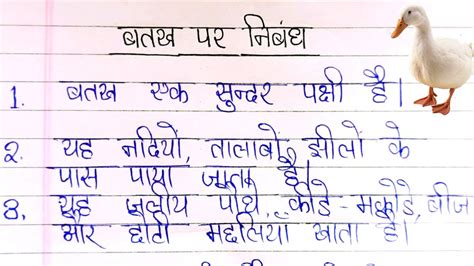 बतख पर निबंध
1. बतख एक सुन्दर पक्षी है।
2. यह नदियों, तालाबों, झीलों के
पास पाया जाता है।
3. यह जलीय पौधे, कीडे-मकोडे, बीज
और छोटी मछलियाँ खाता है।